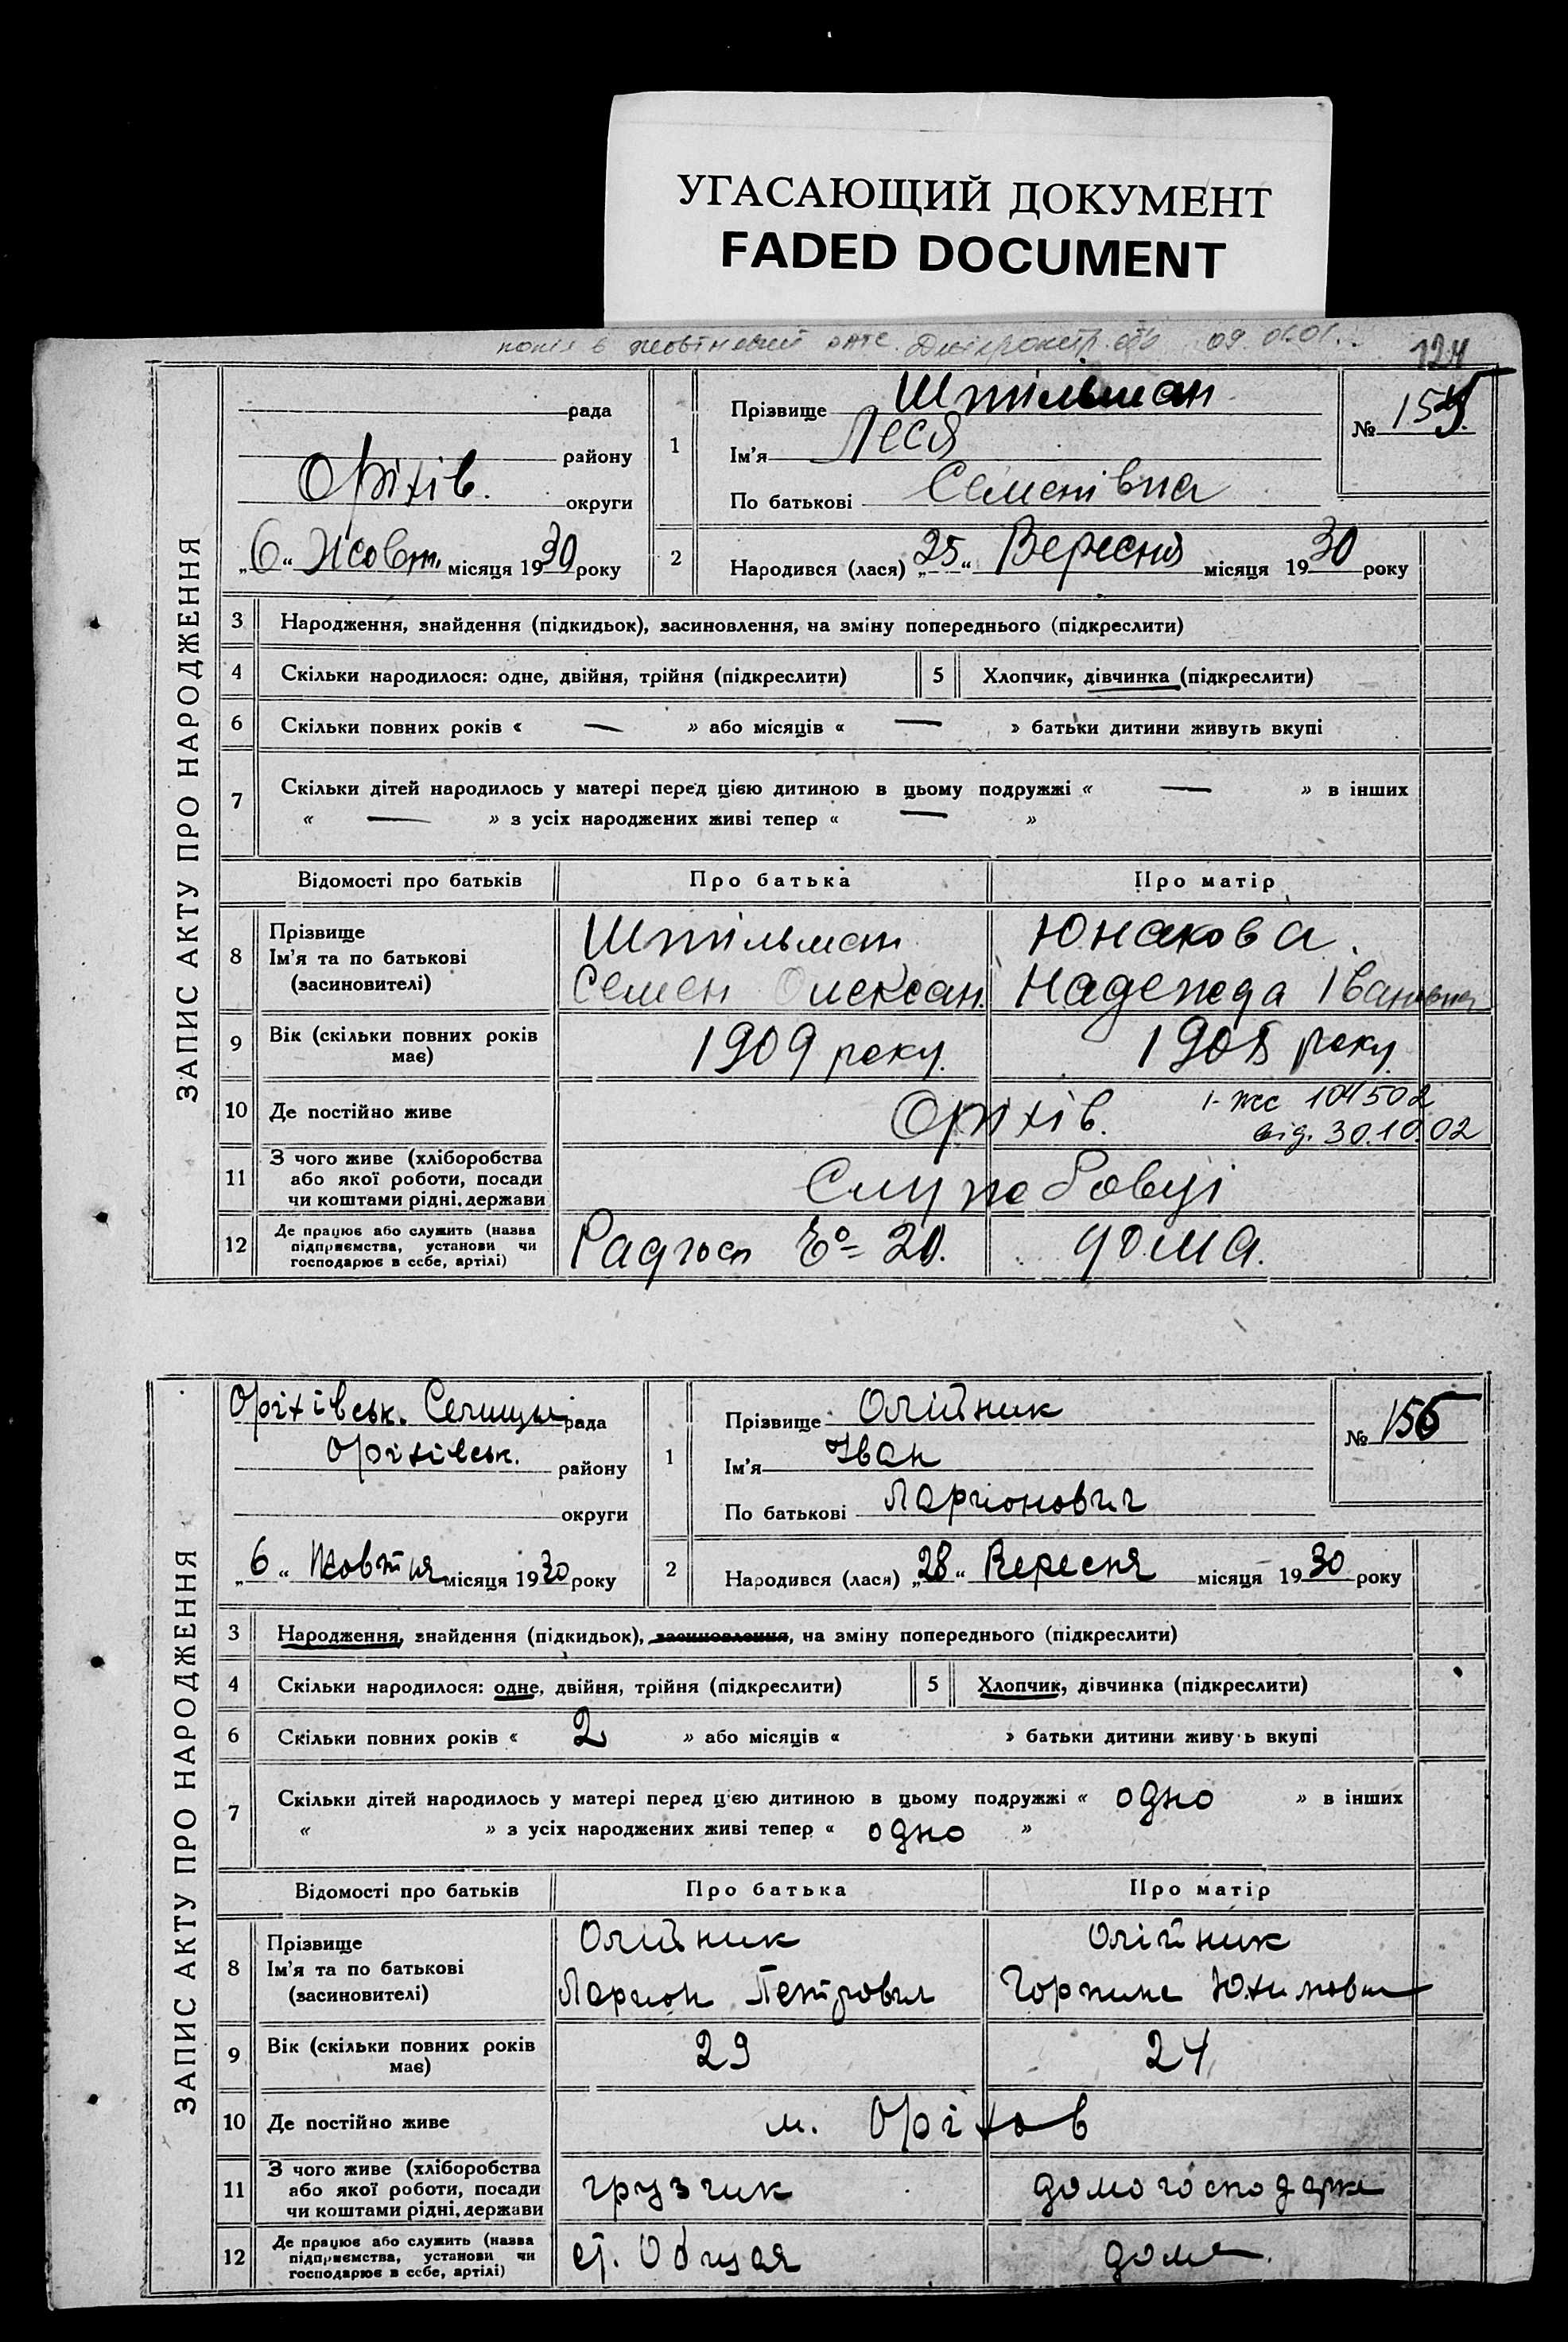 УГАСАЮЩИЙ ДОКУМЕНТ
FADED DOCUMENT
копія в Жовтневий Дніпропетр. 09.01.01.
124
ЗАПИС АКТУ ПРО НАРОДЖЕННЯ
рада
району
Оріхів. округи
„6“ Жовт. місяця 1930 року
1
Прізвище Штільман
Ім'я Леся
По батькові Семенівна
№ 155
2
Народився (лася) „25“ Вересня місяця 1930 року
3 Народження, знайдення (підкидьок), засиновлення, на зміну попереднього (підкреслити)
4 Скільки народилося: одне, двійня, трійня (підкреслити) 5 Хлопчик, дівчинка (підкреслити)
6 Скільки повних років « — » або місяців « — » батьки дитини живуть вкупі
7 Скільки дітей народилось у матері перед цією дитиною в цьому подружжі « — » в інших
« — » з усіх народжених живі тепер « — »
Відомості про батьків Про батька Про матір
8 Прізвище
Ім'я та по батькові
(засиновителі)
Штільман
Семен Олексан.
Юнакова.
Надежда Івановна
9 Вік (скільки повних років
має)
1909 року. 1908 року.
10 Де постійно живе Оріхів.
І-жс 104502
від. 30.10.02
11 З чого живе (хліборобства
або якої роботи, посади
чи коштами рідні, держави
Службовці
12 Де працює або служить (назва
підприємства, установи чи
господарює в себе, артілі)
Радгосп № 20. дома.
ЗАПИС АКТУ ПРО НАРОДЖЕННЯ
Оріхівськ. Селищн рада
Оріхівськ. району
округи
„6“ Жовтня місяця 1930 року
1
Прізвище Олійник
Ім'я Іван
По батькові Ларионович
№ 156
2
Народився (лася) „28“ Вересня місяця 1930 року
3 Народження, знайдення (підкидьок), засиновлення, на зміну попереднього (підкреслити)
4 Скільки народилося: одне, двійня, трійня (підкреслити) 5 Хлопчик, дівчинка (підкреслити)
6 Скільки повних років « 2 » або місяців « » батьки дитини живуть вкупі
7 Скільки дітей народилось у матері перед цією дитиною в цьому подружжі « одно » в інших
« » з усіх народжених живі тепер « одно »
Відомості про батьків Про батька Про матір
8 Прізвище
Ім'я та по батькові
(засиновителі)
Олійник
Ларион Петрович
Олійник
Горпина Юхимовна
9 Вік (скільки повних років
має)
29 24
10 Де постійно живе м. Оріхов
11 З чого живе (хліборобства
або якої роботи, посади
чи коштами рідні, держави
грузчик домогосподарка
12 Де працює або служить (назва
підприємства, установи чи
господарює в себе, артілі)
ст. Общая дома.